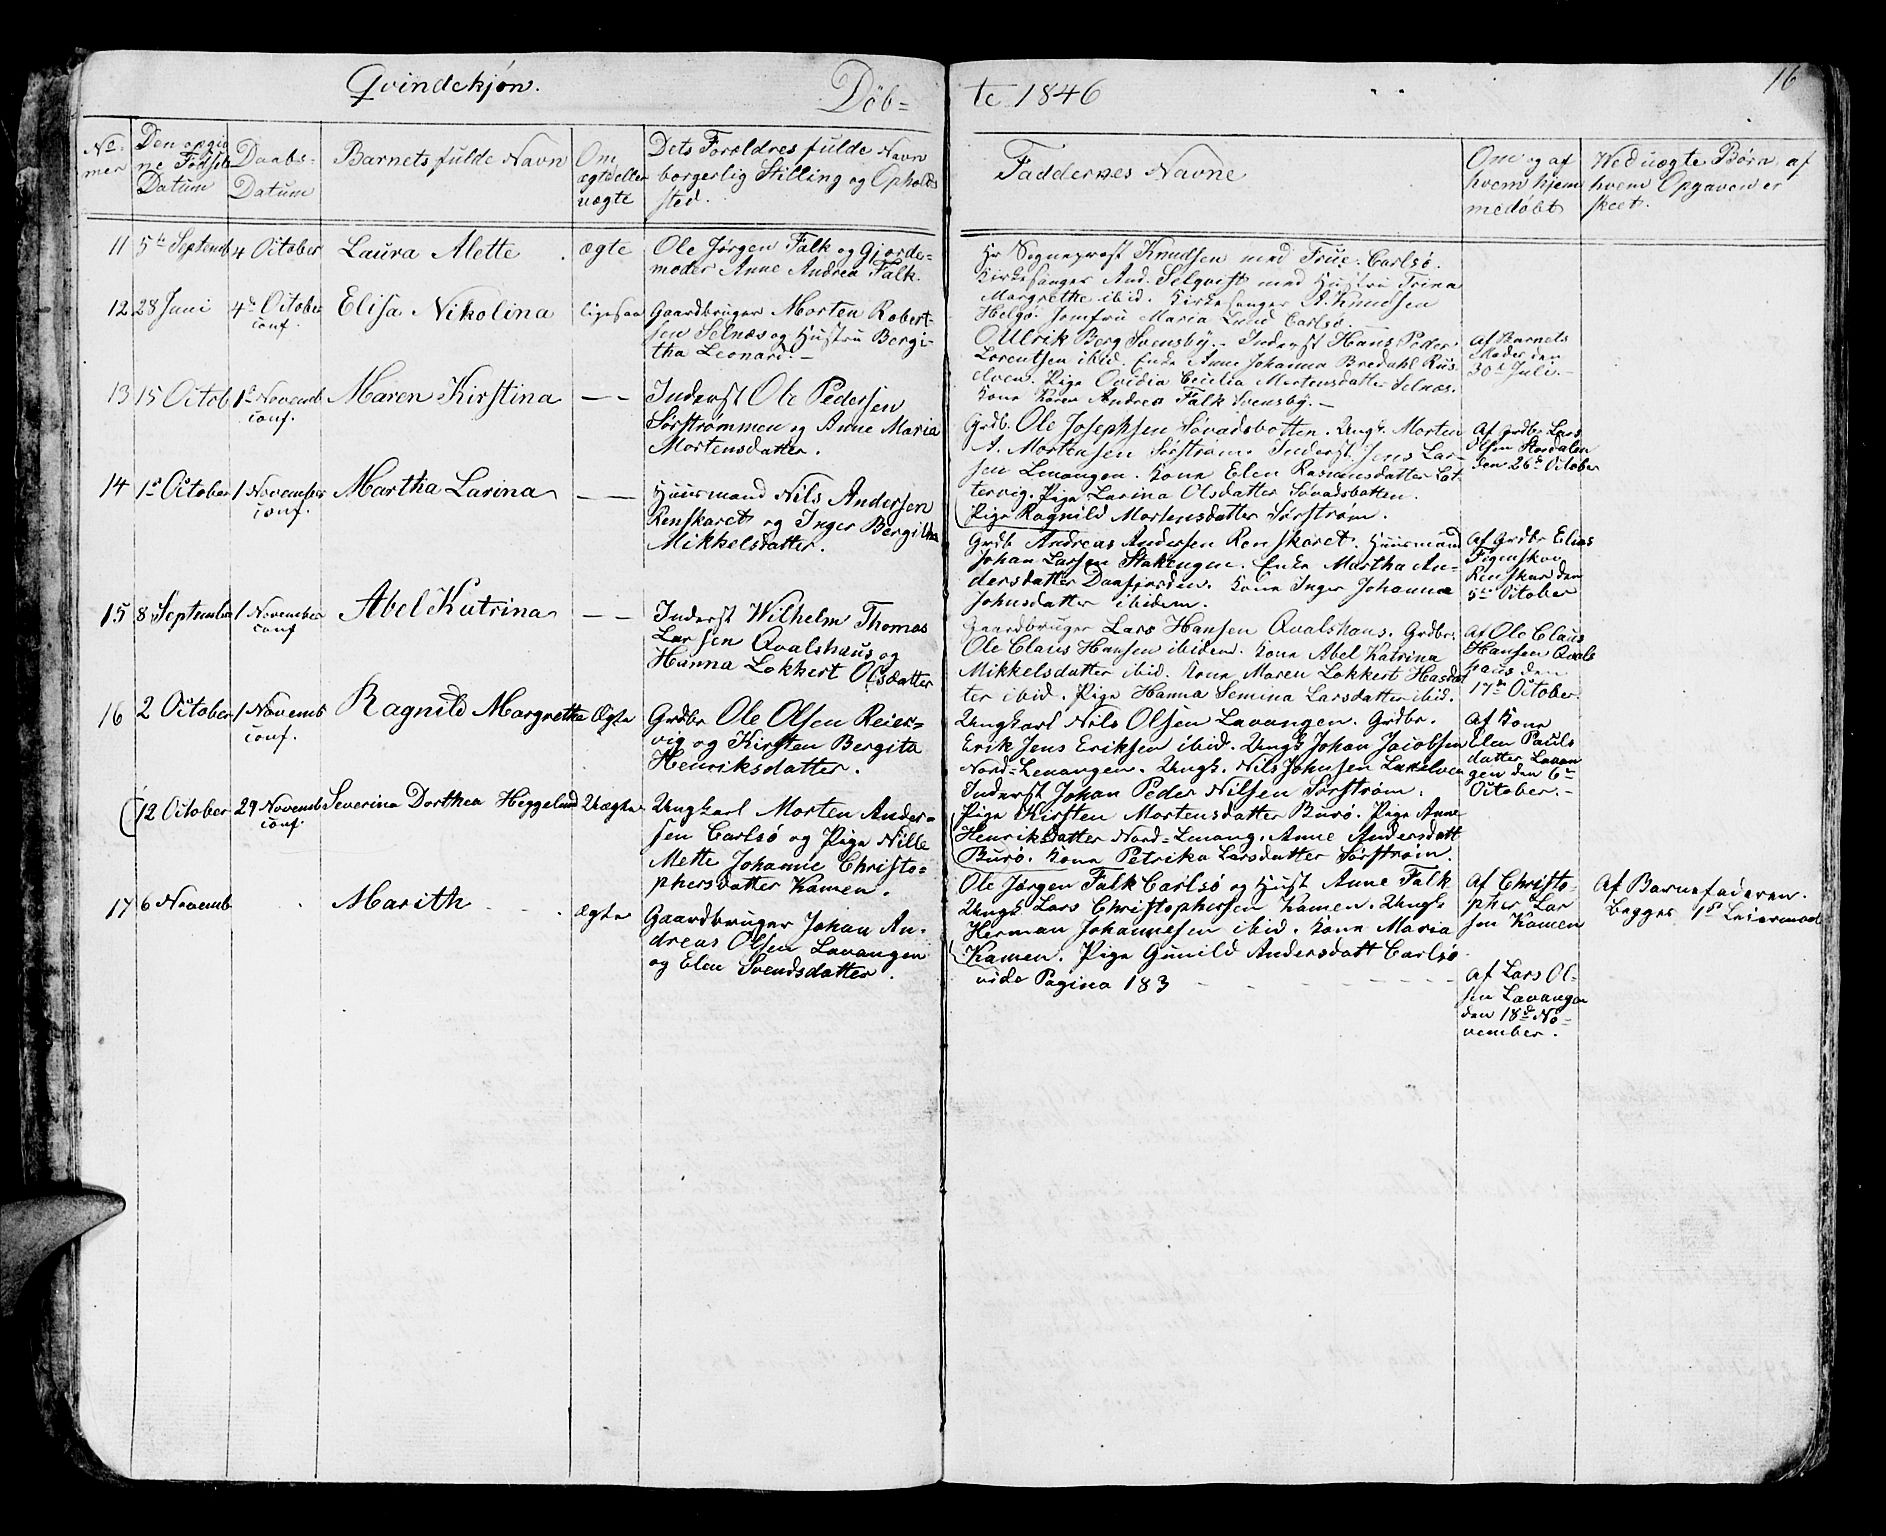 Qvindekjøn.
Døb=
te 1846
16
No
mer
Den opgiv
ne Fødsels
Datum
Daabs-
Datum
Barnets fulde Navn
Om
ægte eller
uægte
Dets Forældres fulde Navn
borgerlig Stilling og Opholds
sted.
Faddernes Navne
Om og af
hvem hjem
medøbt
Ved uægte Børn af
hvem Opgaven er
skeet.
11 5te Septemb 4 October Laura Alette . ægte
Ole Jørgen Falk og Gjorde=
moder Anne Andrea Falk.
Hr Sogneprest Knudsen med Frue. Carlsø.
Kirkesanger And. Selqvist med Hustru Trina
Margrethe ibid. Kirkesanger A. Knudsen
Helgø. Jomfru Maria Lund Carlsø.
12 28 Juni 4de October
conf.
Elisa Nikolina ligesaa
Gaardbruger Morten Robert-
sen Selnæs og Hustru Bergi-
tha Leonard. -
O Ulrik Berg Svensby. - Inderst Hans Peder
Lorentsen ibid. Enke Anne Johanna Bredahl Rus
elven. Pige Ovidia Cecilia Mortensdatter Selnæs.
Kone Karen Andrea Falk Svensby. -
Af Barnets
Moder den
30te Juli. -
13 15 Octob 1ste Novemb
conf.
Maren Kirstina - -
Inderst Ole Pedersen
Sørstrømmen og Anne Maria
Mortensdatter.
Grdb. Ole Josephsen Sövadsbotten. Ungk. Morten
A. Mortensen Sørstrøm. Inderst Jens Lar-
sen Levangen. Kone Elen Rasmusdatter Lat-
tervig. Pige Larina Olsdatter Sövadsbotten.
Pige Ragnild Mortensdatter Sørstrøm.
Af Grdbr Lars
Olsen Stordalen
den 26de October
14 1st October 1 November
conf.
Martha Larina - -
Huusmand Nils Andersen
Renskaret og Inger Bergitha
Mikkelsdatter.
Grdb Andreas Andersen Renskaret. Huusmand
Johan Larsen Stakengen. Enke Martha An-
dersdatter Daafjorden. Kone Inger Johanna
Johnsdatter ibidem.
Af Grdbr Elias
Figenskov
Renskar den
5te October
15 8 September 1 November
conf
Abel Katrina - -
Inderst Wilhelm Thomas
Larsen Qvalshaus og
Hanna Lokkert Olsdatter
Gaardbruger Lars Hansen Qvalshaus. Grdbr.
Ole Claus Hansen ibidem. Kone Abel Katrina
Mikkelsdatter ibid. Kone Maren Lokkert Hasdat
ter ibid. Pige Hanna Semina Larsdatter ibid.
Af Ole Claus
Hansen Qvals
haus den
17de October
16 2 October 1 Novemb
conf.
Ragnild Margretha Ægte
Grdbr Ole Olsen Reier=
vig og Kirsten Bergita
Henriksdatter.
Ungkarl Nils Olsen Lavangen. Grdbr.
Erik Jens Eriksen ibid. Ungk Johan Jacobsen
Nord=Lenangen. Ungk. Nils Johnsen Lakselven
Inderst Johan Peder Nilsen Sørstrøm.
Pige Kirsten Mortensdatter Burø. Pige Anne
Henriksdatter Nord=Lenang. Anne Andersdatt
Burø. Kone Petrika Larsdatter Sørstrøm.
Af Kone
Elen Pauls
datter Lavan
gen den 6te
October. -
12 October 29 Novemb
conf.
Severina Dorthea Heggelund Uægte
Ungkarl Morten Ander=
sen Carlsø og Pige Nille
Mette Johanne Christo=
phersdatter Kamen.
Ole Jørgen Falk Carlsø og Hust Anne Falk
Ungk Lars Christophersen Kamen. Ungk
Herman Johannesen ibid. Kone Maria
Kamen. Pige Gunild Andersdatt Carlsø
Af Christo=
pher Lar
sen Kamen
Af Barnefaderen.
begges 1ste Leiermaal
17 6 Novemb
Marith - - Ægte
Gaardbruger Johan An-
dreas Olsen Lavangen
og Elen Svendsdatter.
vide Pagina 183 - - - - - - -
Af Lars Ol=
sen Lavangen
den 18de No=
vember.